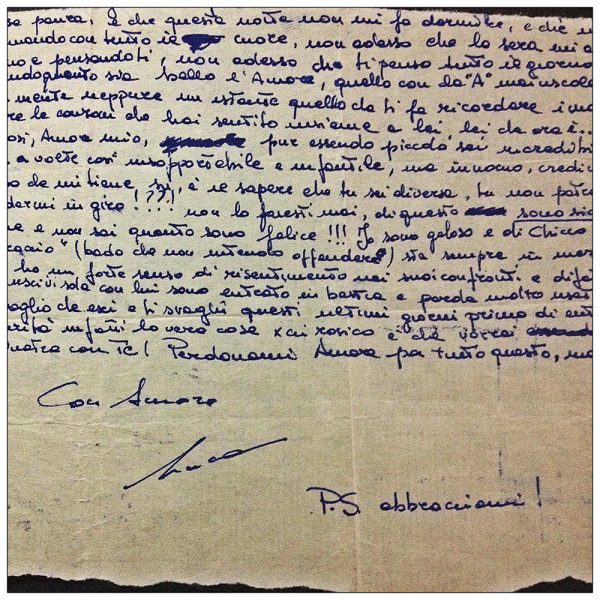 se paura, è che questa notte non mi fa dormire, e che
mando con tutto il cuore, non adesso che la sera mi
no e pensandoti, non adesso che ti penso tutto il giorno
ndo quanto sia bello l'Amore, quello con la "A" maiuscola
mente neppure un istante quello che ti fa ricordare
re le canzoni che hai sentito insieme a lei, lei che ora è..
osi, Amore mio, pur essendo piccola sei incredibi
a volte così insopportabile e infantile, ma innamo, credi
so che mi tiene su, è il sapere che tu sei diversa, tu non
dermi in giro!??! non lo faresti mai, di questo sono sic
e e non sai quanto sono felice!!! Io sono geloso e di Chicco
(bada che non intendo offendere) sta sempre in
ho un forte senso di risentimento nei suoi confronti e
uscivi sola con lui sono entrato in bestia e
voglio che esci e ti svaghi questi ultimi giorni prima di
infatti la vera cosa x cui rosico è che vorrei
con Te! Perdonami Amore per tutto questo, ma
Con Amore
Luca
P.S. abbracciami!